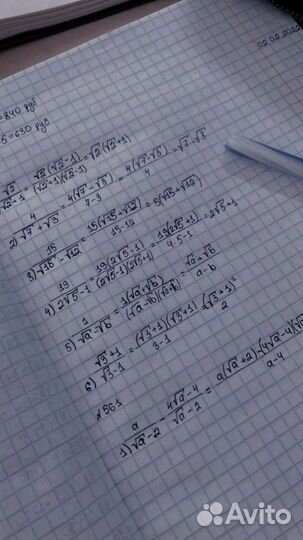 02.02.202
=840 руб
5=630 руб
√2/(√2+1) = √2(√2-1)/((√2+1)(√2-1)) = √2(√2+1)
2) 4/(√7+√3) = 4(√7-√3)/(7-3) = 4(√7-√3)/4 = √7-√3
3) 15/(√15-√12) = 15(√15+√12)/(15-12) = 5(√15+√12)
4) 19/(2√5-1) = 19(2√5-1)/((2√5-1)(2√5+1)) = 19(2√5+1)/(4·5-1) = 2√5+1
5) 1/(√a-√b) = 1(√a+√b)/((√a-√b)(√a+√b)) = (√a+√b)/(a-b)
6) (√3+1)/(√3-1) = (√3+1)(√3+1)/(3-1) = (√3+1)²/2
№561
1) a/(√a-2) - (4√a-4)/(√a-2) = a(√a+2)-(4√a-4)(√ / a-4
Avito